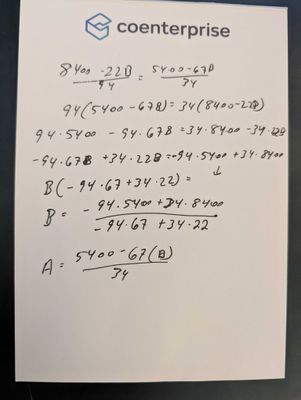 coenterprise
8400 - 22B / 94 = 5400 - 67B / 34
94(5400 - 67B) = 34(8400 - 22B)
94.5400 - 94.67B = 34.8400 - 34.22B
-94.67B + 34.22B = -94.5400 + 34.8400
B(-94.67 + 34.22) = ↓
B = -94.5400 + 34.8400 / -94.67 + 34.22
A = 5400 - 67(B) / 34